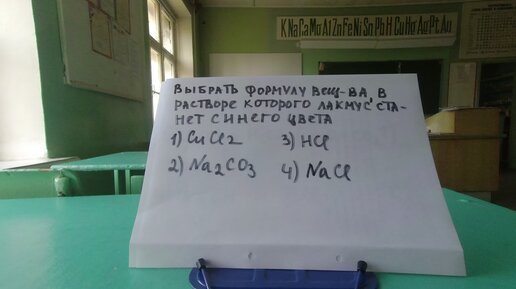 K Na Ca Mg Al Zn Fe Ni Sn Pb H Cu Hg Ag Pt Au
ВЫБРАТЬ ФОРМУЛУ ВЕЩ-ВА, В
РАСТВОРЕ КОТОРОГО ЛАКМУС СТА-
НЕТ СИНЕГО ЦВЕТА
1) CuCl2 3) HCl
2) Na2CO3 4) NaCl